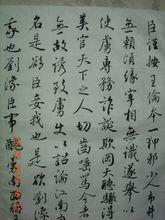 臣謹按王倫本一狎邪小人市
無賴頃緣宰相無識遂舉以
使虜專務詐誕欺罔天聽驟得
美官天下之人切齒唾罵今者
無故誘致虜使以詔諭江南
名是欲臣妾我也是欲劉豫
我也劉豫臣事醜虜南面稱